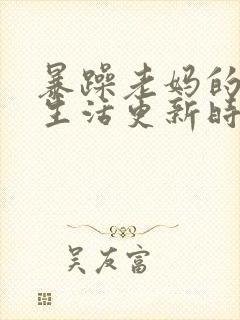 暴躁老妈的
生活更新时
吴友富